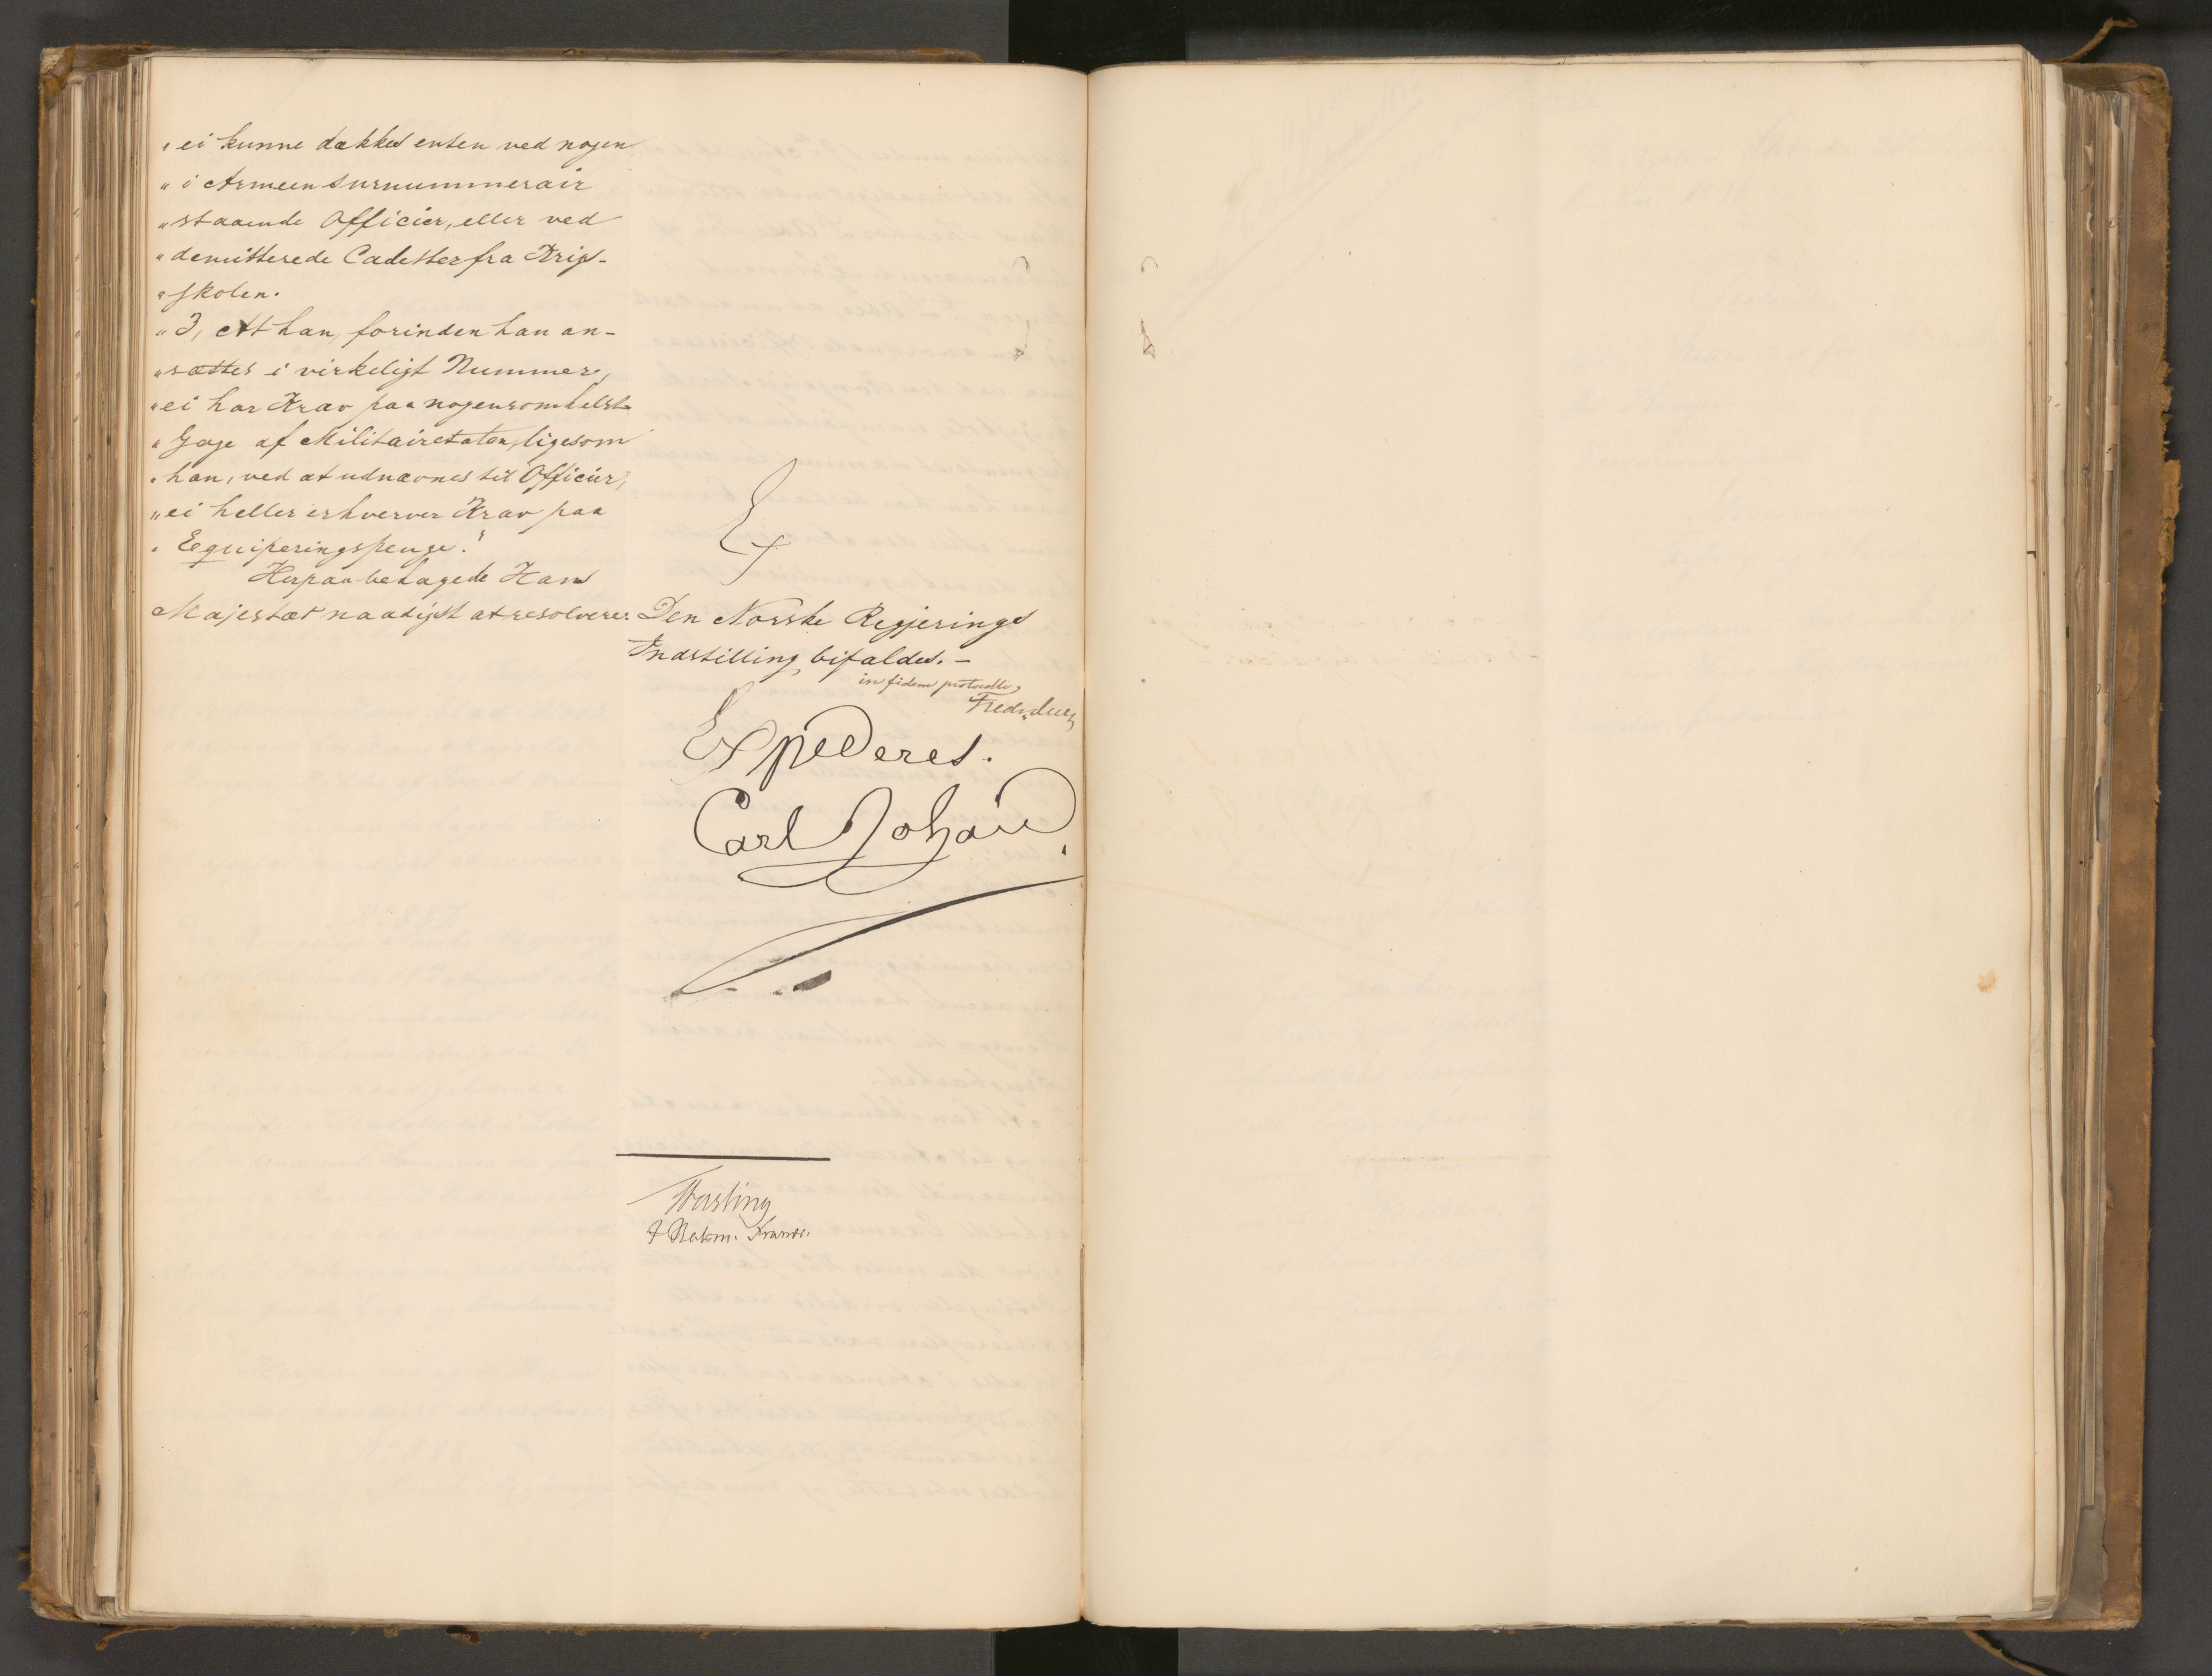 "ei kunne dækkes enten ved nogen
"i Armeen surnummerair
"staaende Officier, eller ved
"demitterede Cadetter fra Krigs-
"skolen.
"3, At han, forinden han an-
"sættes i virkeligt Nummer,
"ei har Krav paa nogensomhelst
"Gage af Militairetaten, ligesom
"han, ved at udnævnes til Officier,
"ei heller erhverver Krav paa
"Equiperingspenge."
Herpaa behagede Hans
Majestæt naadigst at resolvere:
Ex
Den Norske Regjerings
Indstilling bifaldes. –
in fidem protocolli,
Fredr. Due
Expederes.
Carl Johan